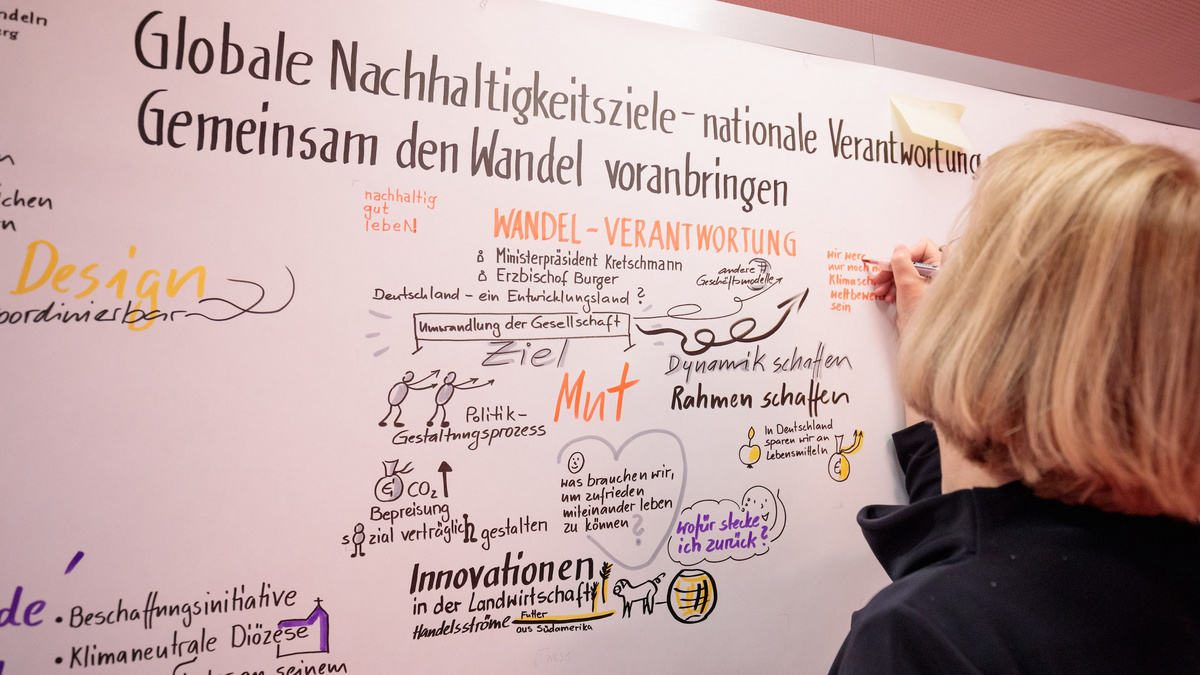 ndeln
erg
Globale Nachhaltigkeitsziele - nationale Verantwortung
Gemeinsam den Wandel voranbringen
n
ichen
n
Design
oordinierbar
nachhaltig
gut
lebeN!
WANDEL - VERANTWORTUNG
Ministerpräsident Kretschmann
Erzbischof Burger
Deutschland - ein Entwicklungsland?
andere
Geschäftsmodelle
Wir
nur noch
Klimasch
Wettbewer
sein
Umwandlung der Gesellschaft
Ziel
Dynamik schaffen
Rahmen schaffen
Mut
Politik-
Gestaltungsprozess
In Deutschland
sparen wir an
Lebensmitteln
€
€
CO2
Bepreisung
sozial verträglich gestalten
was brauchen wir,
um zufrieden
miteinander leben
zu können
?
wofür stecke
ich zurück?
Innovationen
in der Landwirtschaft
Handelsströme
Futter
aus Südamerika
de'
• Beschaffungsinitiative
• Klimaneutrale Diözese
seinem